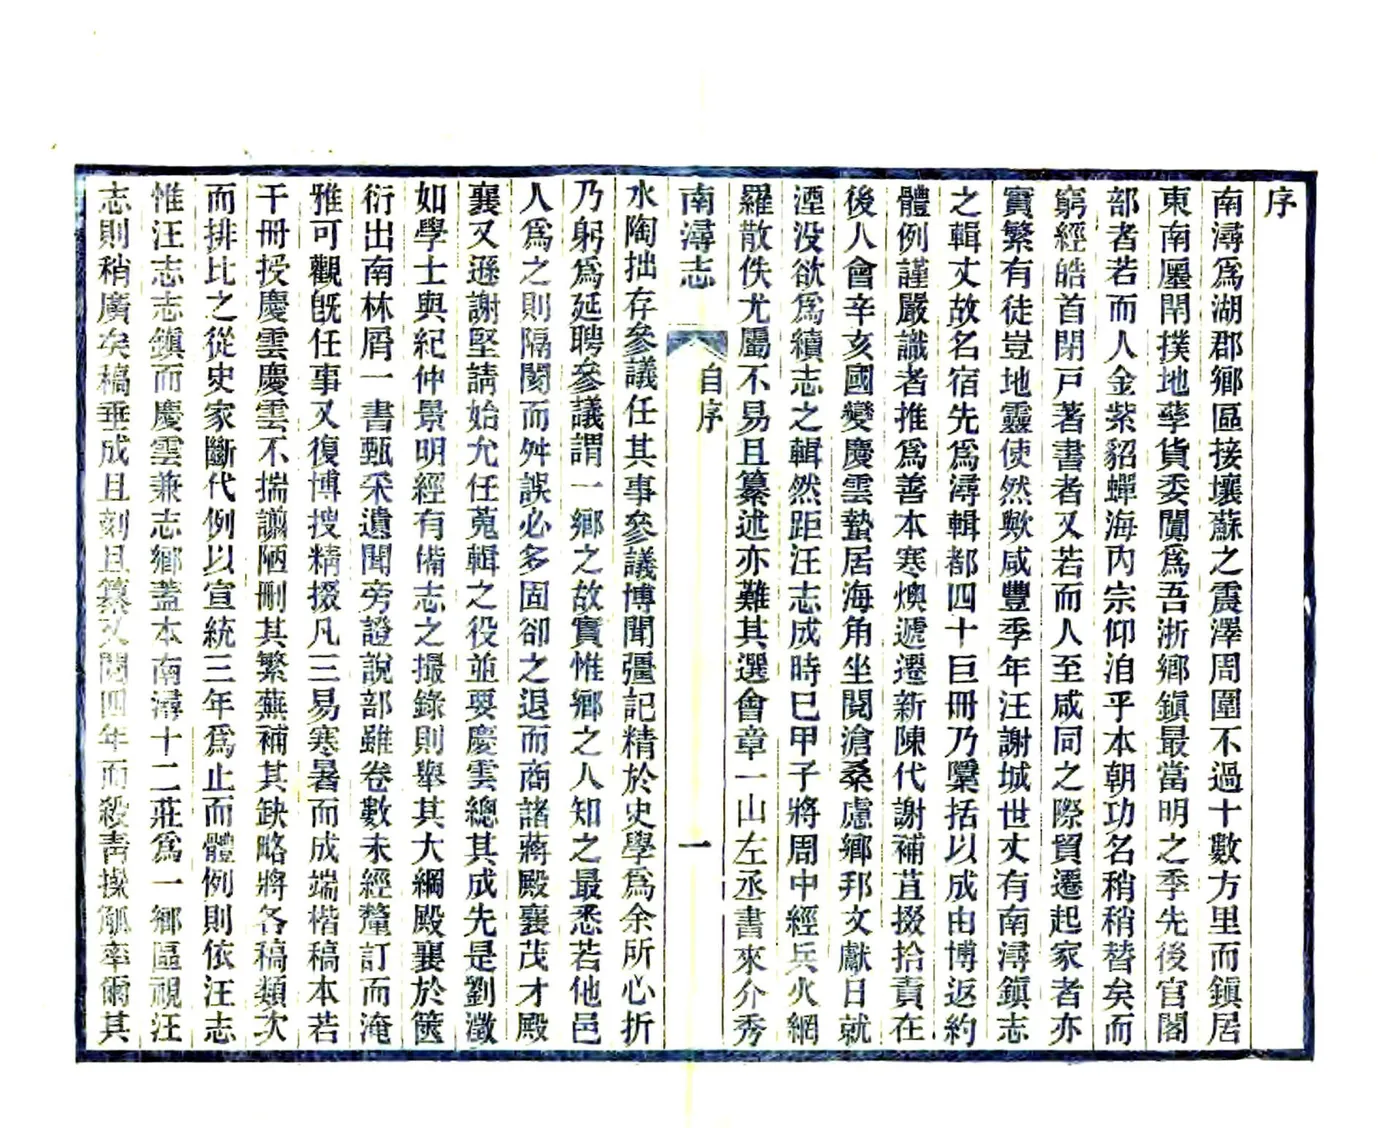 序
南潯爲湖郡鄉區接壤蘇之震澤周圍不過十數方里而鎮居
東南廛閈撲地孳貨委闠爲吾浙鄉鎮最當明之季先後官閣
部者若而人金紫貂蟬海內宗仰洎乎本朝功名稍稍替矣而
窮經皓首閉戶著書者又若而人至咸同之際貿遷起家者亦
實繁有徒豈地靈使然歟咸豐季年汪謝城世丈有南潯鎮志
之輯丈故名宿先爲潯輯都四十巨冊乃檃括以成由博返約
體例謹嚴識者推爲善本寒燠遞遷新陳代謝補苴掇拾責在
後人會辛亥國變慶雲蟄居海角坐閱滄桑慮鄉邦文獻日就
湮没欲爲續志之輯然距汪志成時巳甲子將周中經兵火網
羅散佚尤屬不易且纂述亦難其選會章一山左丞書來介秀
南潯志
自序
一
水陶拙存參議任其事參議博聞彊記精於史學爲余所心折
乃躬爲延聘參議謂一鄉之故實惟鄉之人知之最悉若他邑
人爲之則隔閡而舛誤必多固卻之退而商諸蔣殿襄茂才殿
襄又遜謝堅請始允任蒐輯之役並要慶雲總其成先是劉澂
如學士與紀仲景明經有備志之撮錄則舉其大綱殿襄於篋
衍出南林屑一書甄采遺聞旁證說部雖卷數未經釐訂而淹
雅可觀旣任事又復博搜精掇凡三易寒暑而成端楷稿本若
干冊授慶雲慶雲不揣譾陋刪其繁蕪補其缺略將各稿類次
而排比之從史家斷代例以宣統三年爲止而體例則依汪志
惟汪志志鎮而慶雲兼志鄉蓋本南潯十二莊爲一鄉區視汪
志則稍廣矣稿垂成且刻且纂又閱四年而殺青操觚率爾其